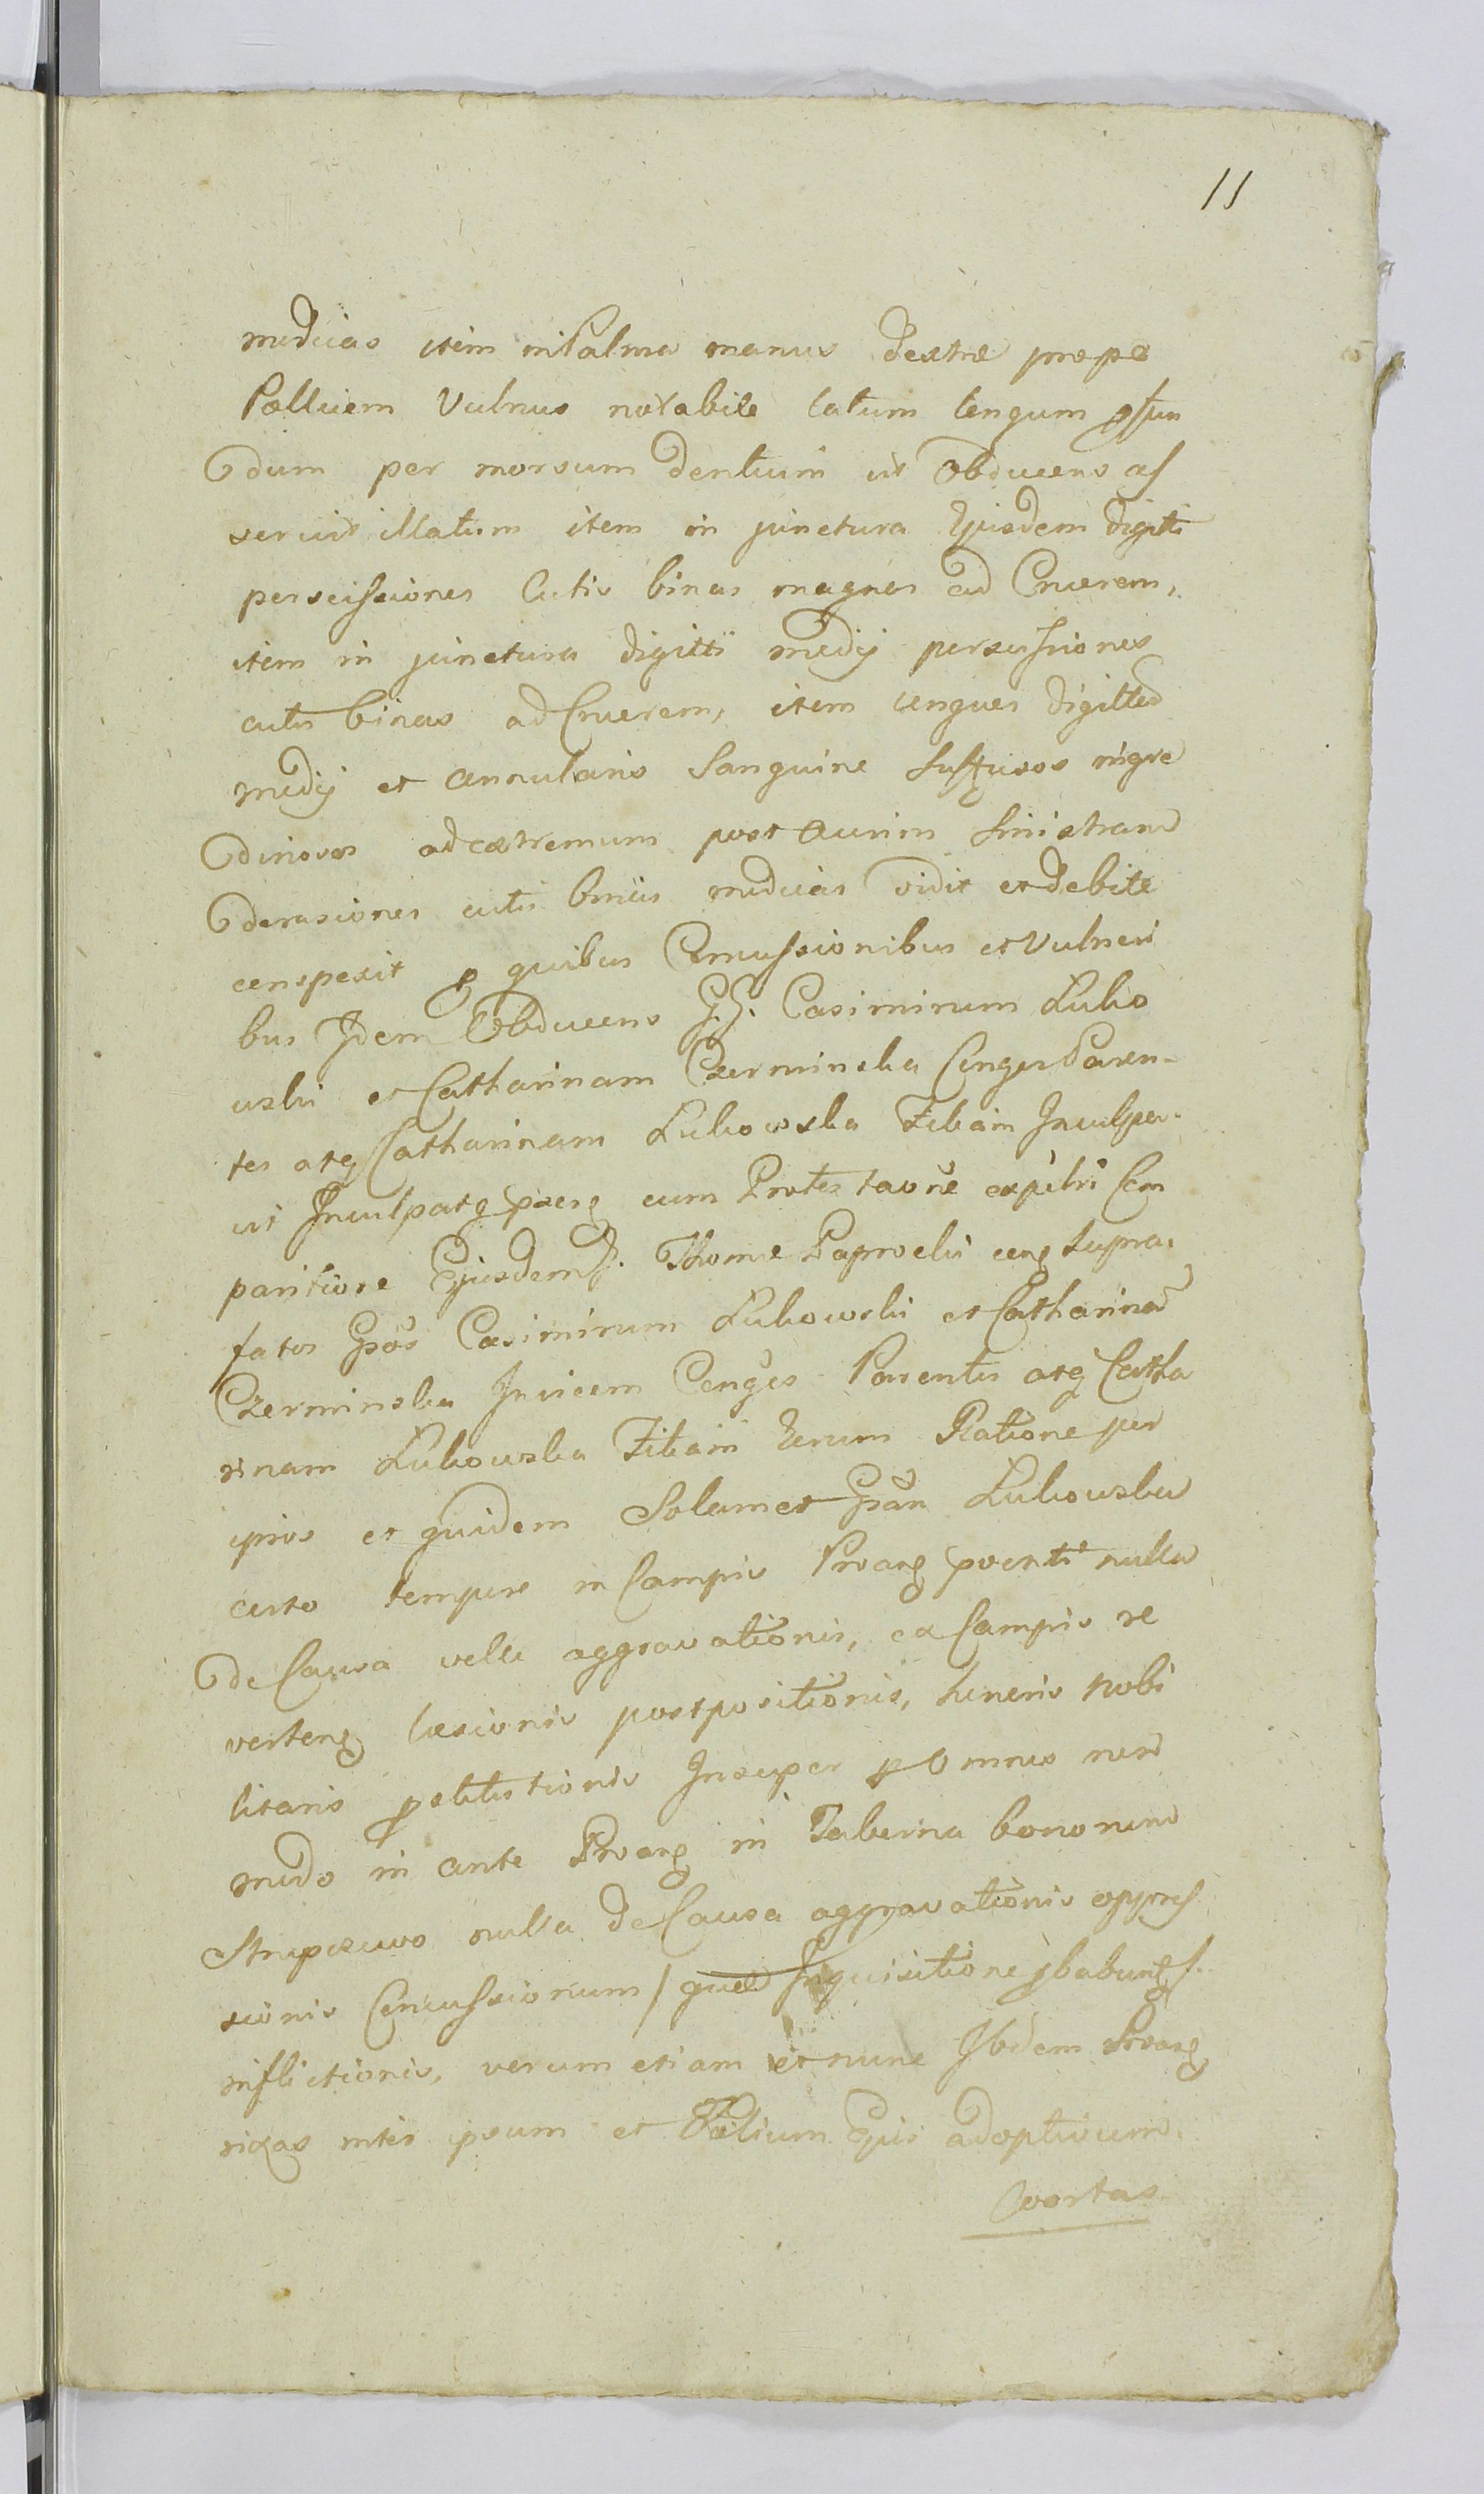 11
modicas item in Palma manus dextræ prope
Pollicem Vulnus notabile latum longum profun
dum per morsum dentium ut Obducens as
seruit illatum item in junctura Ejusdem digiti
perscissiones Cutis binas magnas ad Cruorem,
item in junctura digitti medij perscissiones
cutis binas ad Cruorem, item ungues digittor
medij et annularis Sanguine suffusos nigre
dinosos ad extremum post Aurim sinistram
derasiones cutis binas modicas vidit et debite
conspexit pro quibus Concussionibus et Vulneri
bus Idem Obducens GG. Casimirum Luko
wski et Catharinam Czerminska Conges Paren-
tes atq Catharinam Lukowska Filiam Inculpa-
vit Inculpatq praesq cum Protestaone expchi Com
paritione Ejusdem G. Thomæ Paprocki conq supra-
fatos Gsos Casimirum Lukowski et Catharinam
Czerminska Invicem Conges Parentes atq Catha
rinam Lukowska Filiam Eorum Ratione per
ipsos et quidem Solamet Gsam Lukowska
certo tempore in Campis Proarq poenti nulla
de Causa velle aggravationis, ex Campis re
vertenq læsionis postpositionis, huneris Nobi
litaris prostitutionis Insuper per Omnes non
modo in ante Proarq in Taberna bonorum
Strupczewo nulla de Causa aggravationis oppres
sionis Concussionum / quæ Inquisitione pbabunq /
inflictionis, verum etiam et nunc Ibidem Proarq
rixas inter ipsum et Filium Ejus adoptivum
Coortas